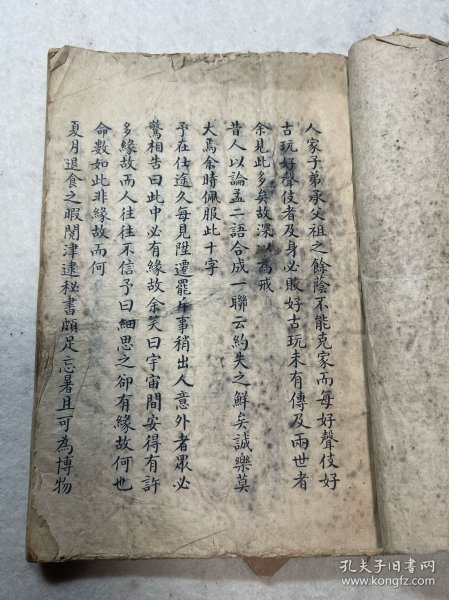 人家子弟承父祖之餘蔭不能克家而每好聲伎好
古玩好聲伎者及身必敗好古玩未有傳及兩世者
余見此多矣故深以為戒
昔人以論孟二語合成一聯云約失之鮮矣誠樂莫
大焉余時佩服此十字
予在仕途久每見陞遷罷斥事稍出人意外者眾必
驚相告曰此中必有緣故余笑曰宇宙間安得有許
多緣故而人往往不信予曰細思之卻有緣故何也
命數如此非緣故而何
夏月退食之暇閱津逮秘書頗足忘暑且可為博物
孔夫子旧书网
www.kongfz.com